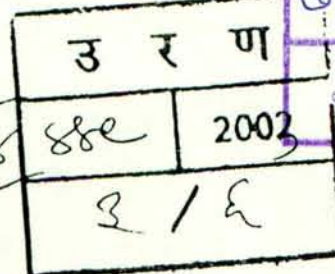 उ र ण
४४९ 2003
३ / ६